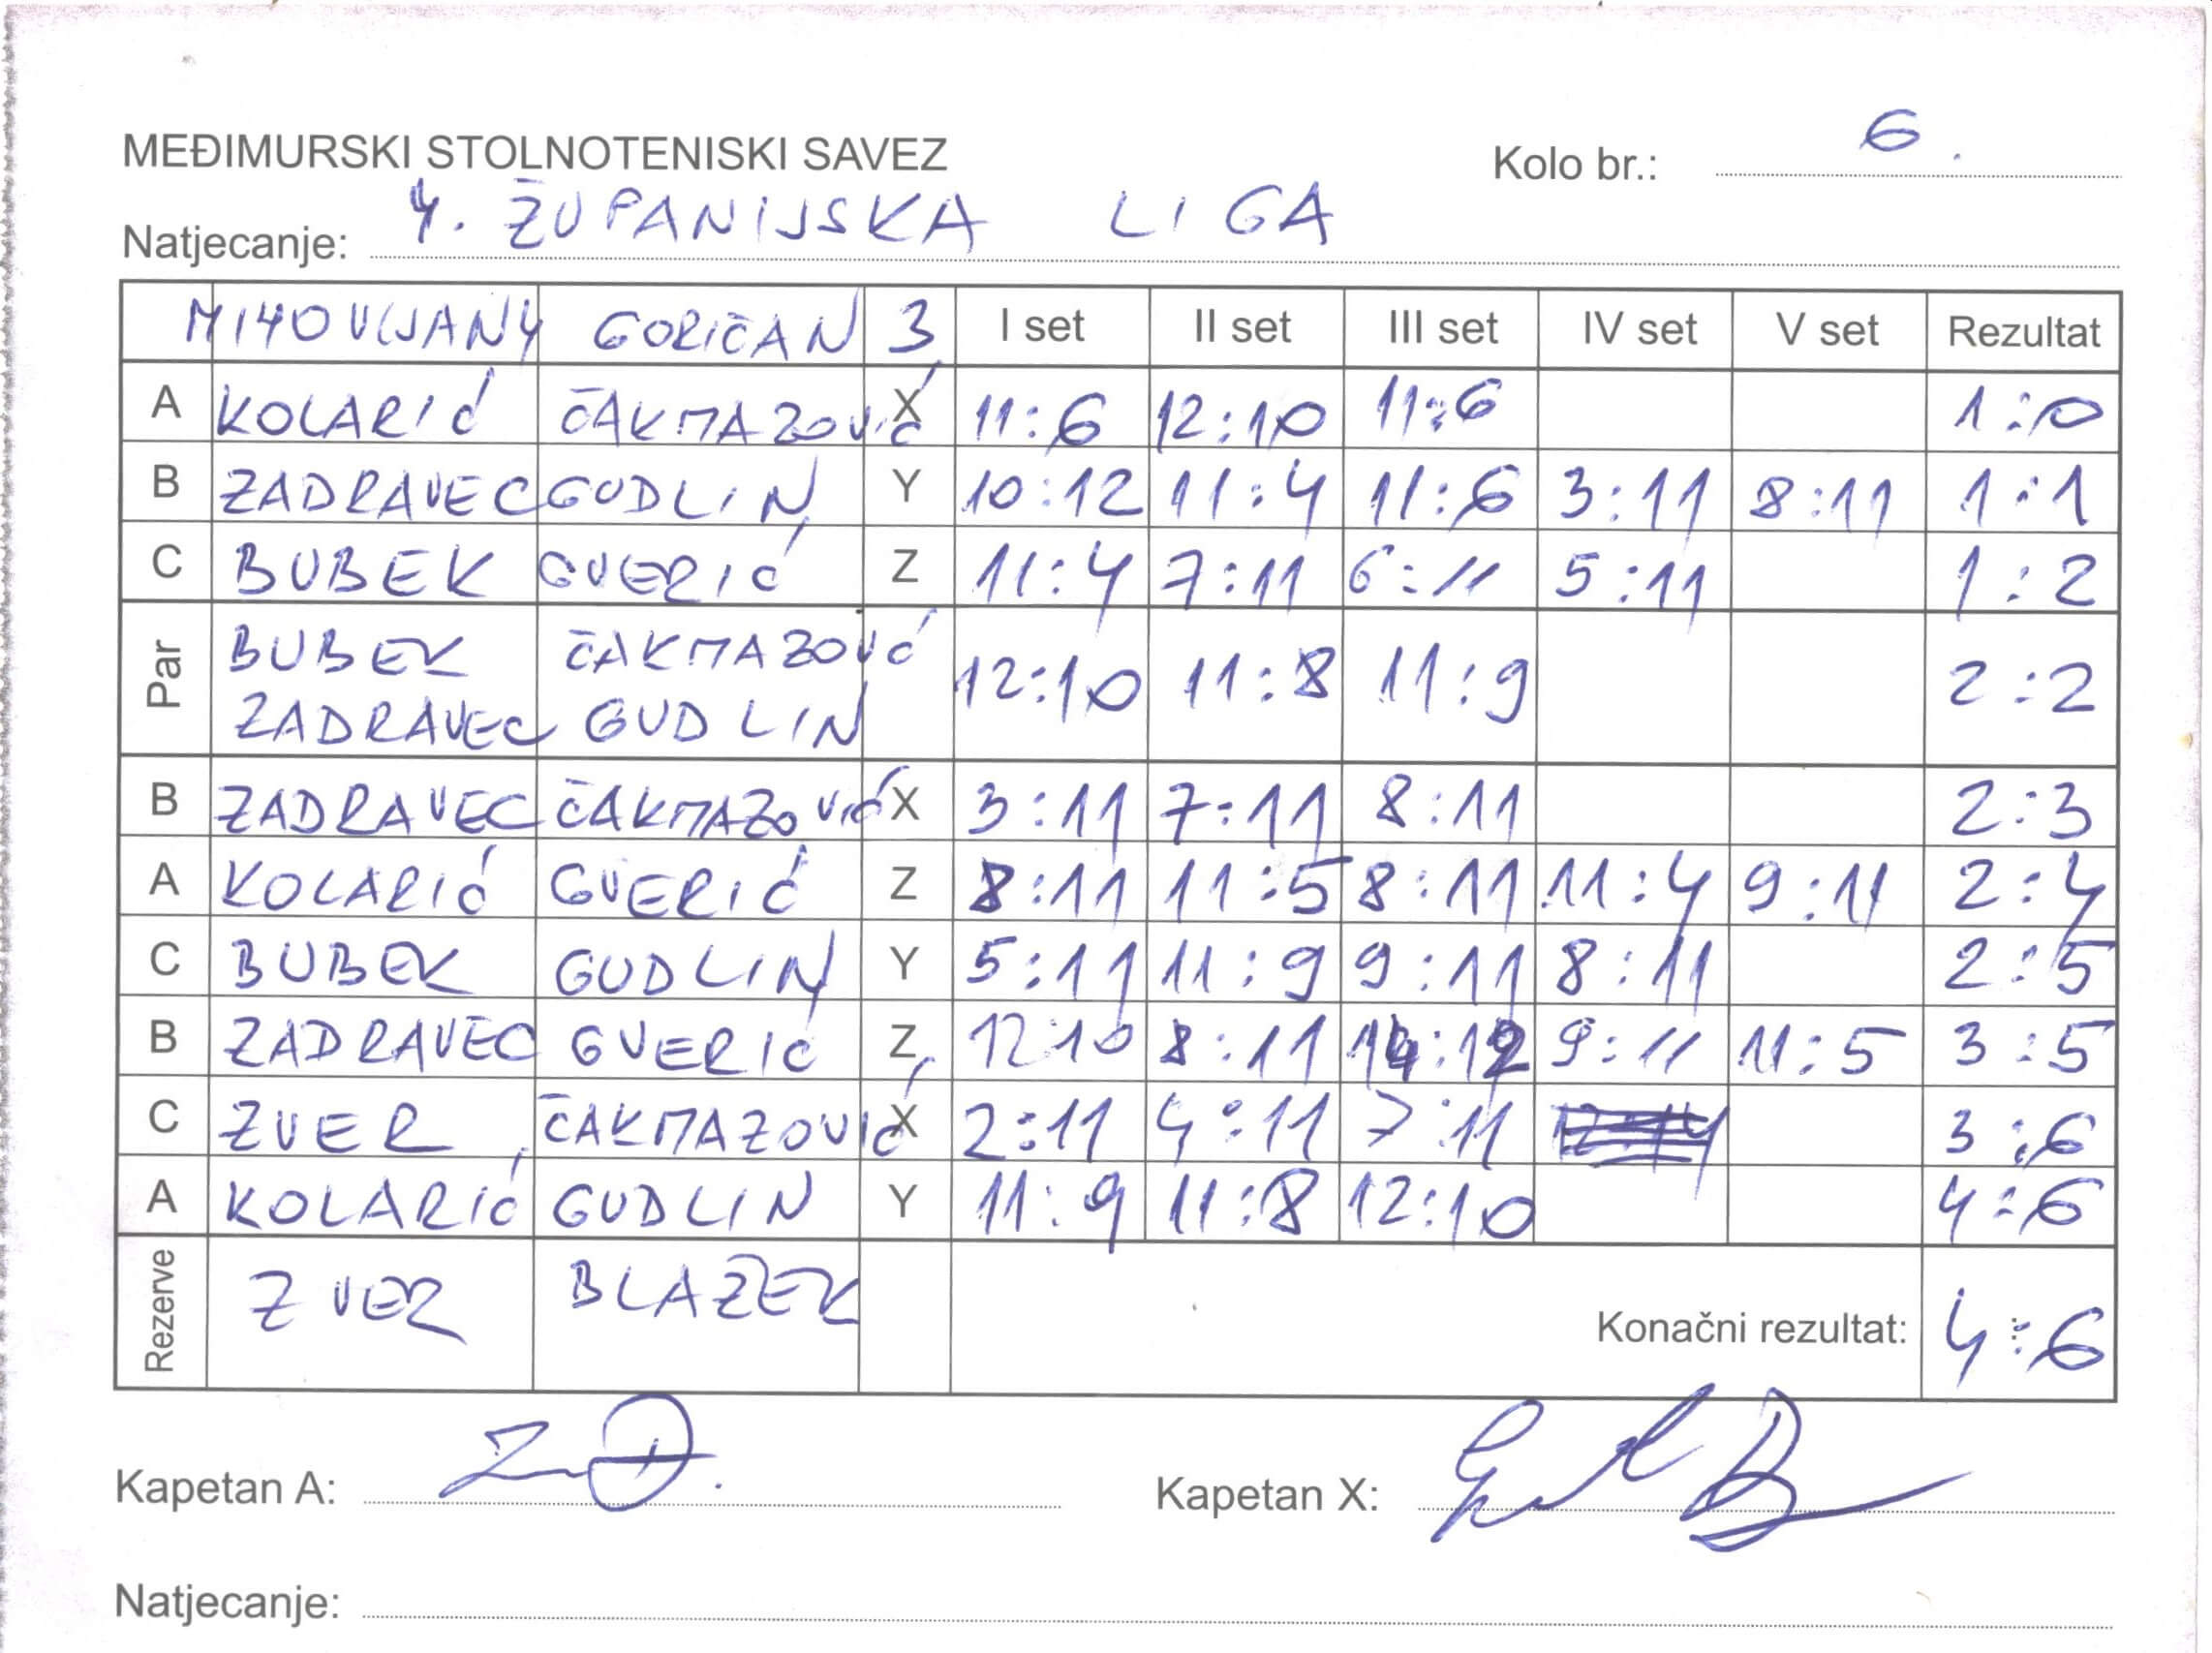 MEĐIMURSKI STOLNOTENISKI SAVEZ Kolo br.: 6.
Natjecanje: 4. ŽUPANIJSKA LIGA
MIHOVLJAN 4 GORIČAN 3 I set II set III set IV set V set Rezultat
A KOLARIĆ ČAKMAZOVIĆ X 11:6 12:10 11:6 1:0
B ZADRAVEC GUDLIN Y 10:12 11:4 11:6 3:11 8:11 1:1
C BUBEK GVERIĆ Z 11:4 7:11 6:11 5:11 1:2
Par BUBEK ČAKMAZOVIĆ 12:10 11:8 11:9 2:2
ZADRAVEC GUDLIN
B ZADRAVEC ČAKMAZOVIĆ X 3:11 7:11 8:11 2:3
A KOLARIĆ GVERIĆ Z 8:11 11:5 8:11 11:4 9:11 2:4
C BUBEK GUDLIN Y 5:11 11:9 9:11 8:11 2:5
B ZADRAVEC GVERIĆ Z 12:10 8:11 14:12 9:11 11:5 3:5
C ZVER ČAKMAZOVIĆ X 2:11 4:11 7:11 3:6
A KOLARIĆ GUDLIN Y 11:9 11:8 12:10 4:6
Rezerve ZVER BLAŽEK Konačni rezultat: 4:6
Kapetan A: Kapetan X:
Natjecanje: